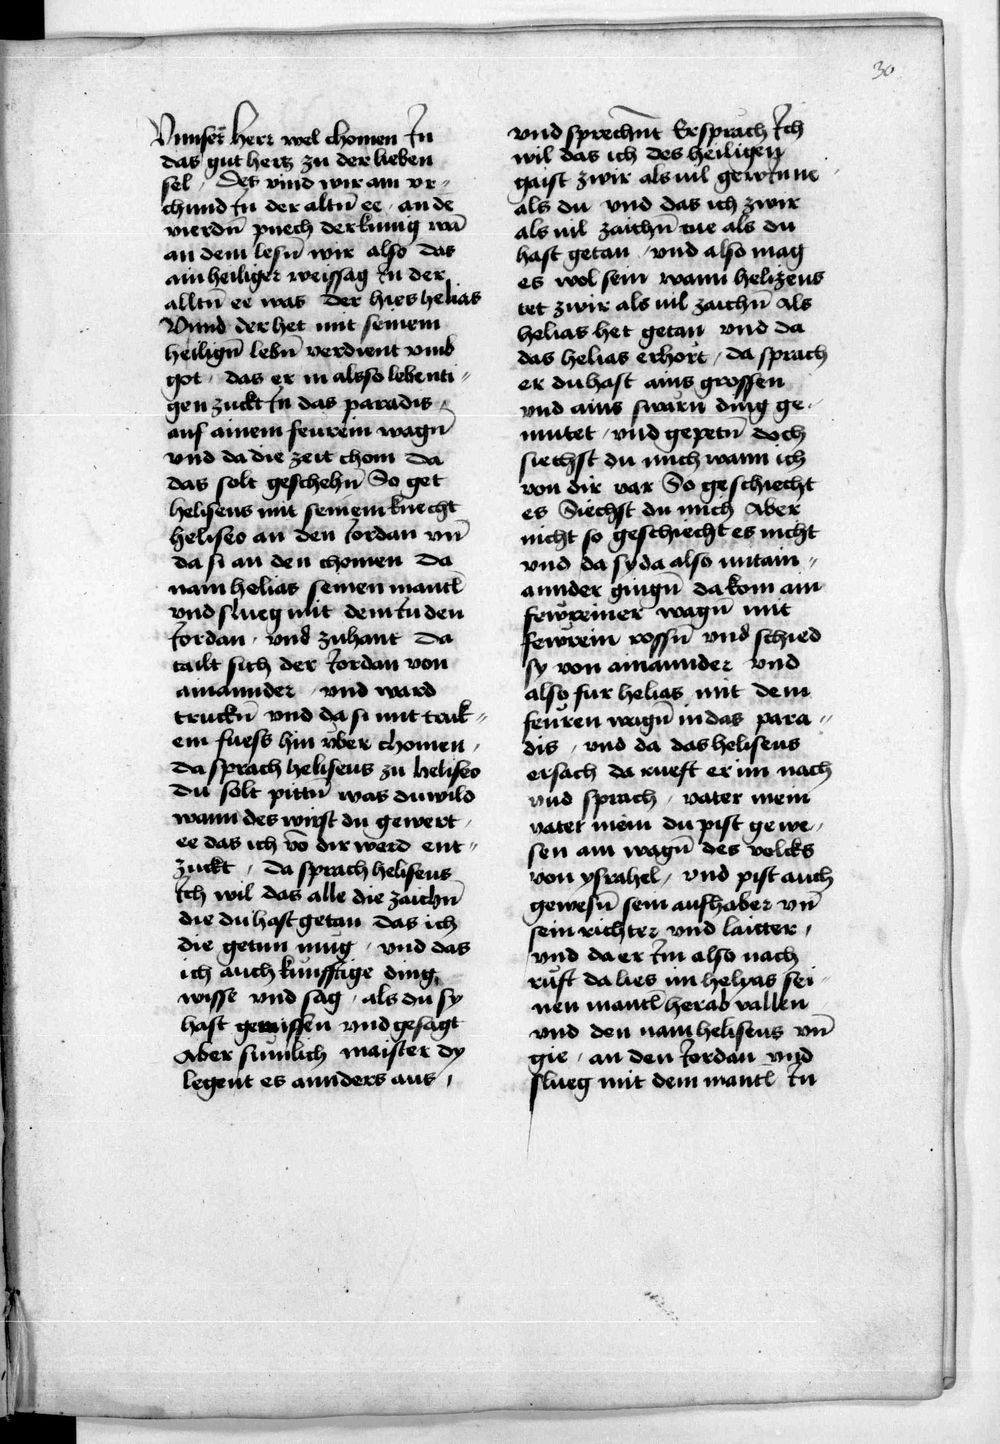 30
Vnnser herr wel chomen Jn
das gut hertz zu der lieben
sel / Des vind wir am vr=
chund Jn der altn̄ ee / an dē
vierdn̄ puech der kunig wā
an dem lesn̄ wir also das
ain heiliger weissag Jn der
alltn̄ ee was der hies helias
Vnnd der het mit seinem
heilign̄ lebn̄ verdient vmb
got / das er in alsso lebenti=
gen zuckt Jn das paradis /
auf ainem feurein wagn̄
vnd da die zeit chom Da
das solt geschehn̄ So get
heliseus mit seinem knecht
heliseo an den Jordan vn̄
da si an den chomen Da
nam helias seinen mantl̄
vnd slueg mit dem Jn den
Jordan / vnd zuhant Da
tailt sich der Jordan von
ainannder / vnd ward
truckn̄ vnd da si mit truk=
em fuess hin vber chomen /
Da sprach heliseus zu heliseo
Du solt pittn̄ was du wild
wann des wirst du gewert /
ee das ich vō dir werd ent=
zuckt / Da sprach heliseus
Jch wil das alle die zaichn̄
die du hast getan Das ich
die getun mug / vnd das
ich auch kunfftige ding
wisse vnd sag / als du sy
hast gewissen vnd gesagt
Aber sumlich maister dy
legent es annders aus /
vnd sprechn̄t Er sprach Jch
wil das ich des heiligen
gaist zwir als uil gewJnne /
als du vnd das ich zwir
als uil zaichn̄ tue als du
hast getan / vnd also mag
es wol sein wann helizeus
tet zwir als uil zaichn̄ Als
helias het getan vnd da
das helias erhort / da sprach
er du hast ains grossen
vnd ains swarn ding ge=
mutet / vnd gepetn̄ doch
siechst du mich wann ich
von dir var So geschiecht
es Siechst du mich Aber
nicht so geschiecht es nicht
vnd da sy da also mitain=
annder gingn̄ da kom ain
fewreiner wagn̄ mit
fewrein rossn̄ vnd schied
sy von ainannder vnd
also fur helias mit dem
feuren wagn̄ in das para=
dis / vnd da das heliseus
ersach da rueft er im nach
vnd sprach / vater mein
vater mein du pist gewe=
sen am wagn̄ des volcks
von ysrahel / vnd pist auch
gewesn̄ sein aufhaber vn̄
sein richter vnd laitter /
vnd da er Jm also nach
ruft da lies im helyas sei=
nen mantl̄ herab vallen
vnd den nam heliseus vn̄
gie / an den Jordan vnd
slueg mit dem mantl̄ Jn